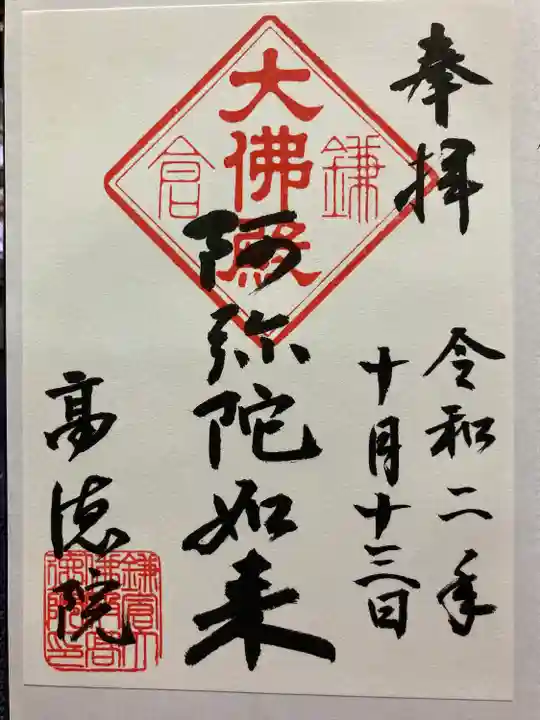 奉拝
令和二年
十月十三日
鎌倉
大佛殿
阿弥陀如来
高徳院